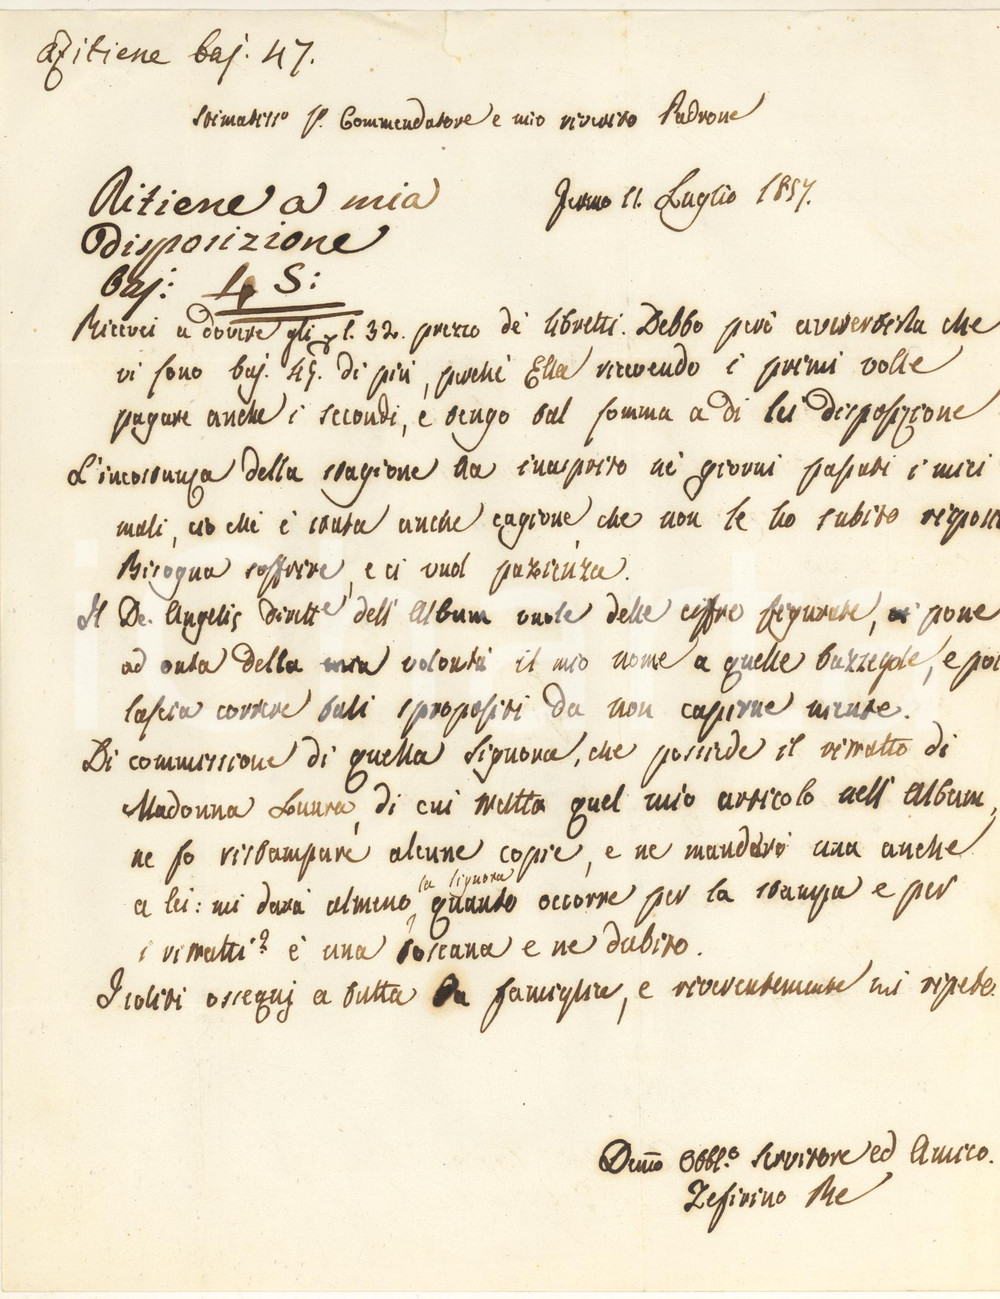 Ritiene baj. 47.
Stimatiss.o S.r Commendatore e mio riverito Padrone
Ritiene a mia
disposizione
baj: 4 S:
Fermo 11. Luglio 1857.
Ricevei a dovere gli 32. prezzo de' libretti. Debbo però avvertirla che
vi sono baj. 45. di più, perchè Ella ricevendo i primi volle
pagare anche i secondi, e tengo tal somma a di lei disposizione
L'incostanza della stagione ha inasprito ne' giorni passati i miei
mali, ciò che è stata anche cagione, che non le ho subito
Bisogna soffrire, e ci vuol pazienza.
Il De. Angelis dirett.e dell' Album vuole delle cifre figurate, pone
ad onta della mia volontà il mio nome a quelle bazzegole, e poi
lascia correre tali spropositi da non capirne niente.
Di commissione di quella Signora, che possiede il ritratto di
Madonna Laura, di cui tratta quel mio articolo nell' Album,
ne fo ristampare alcune copie, e ne manderò una anche
a lei: mi darà almeno la Signora quanto occorre per la stampa e per
i ritratti? è una toscana e ne dubito.
I soliti ossequj a tutta la famiglia, e riverentemente mi ripeto
Dev.mo Obbl.o Servitore ed Amico.
Zefirino Re